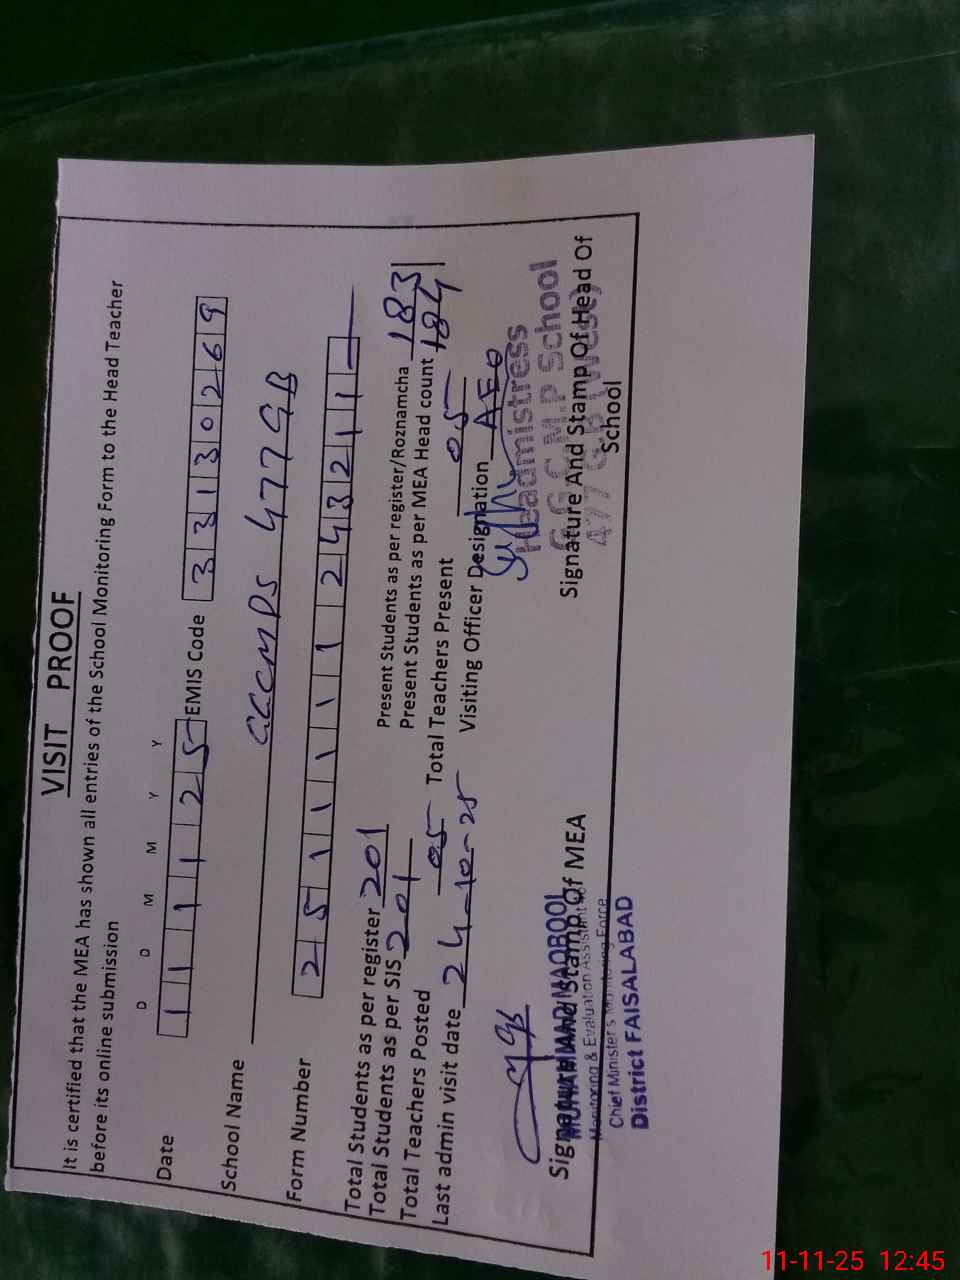 VISIT PROOF
It is certified that the MEA has shown all entries of the School Monitoring Form to the Head Teacher
before its online submission
D D M M Y Y
Date 1 1 1 1 2 5 EMIS Code 3 3 1 3 0 2 6 9
School Name GGCMPS 477 GB
Form Number 2 5 1 1 1 1 1 1 2 4 3 2 1 1
Total Students as per register 201 Present Students as per register/Roznamcha 183
Total Students as per SIS 201 Present Students as per MEA Head count 184
Total Teachers Posted 05 Total Teachers Present 05
Last admin visit date 24-10-25 Visiting Officer Designation AEO
Headmistress
G.G.C.M.P School
477 G.B (West)
Signature And Stamp Of MEA Signature And Stamp Of Head Of
School
MAQBOOL
Monitoring & Evaluation Assistant
Chief Minister's Monitoring Force
District FAISALABAD
11-11-25 12:45